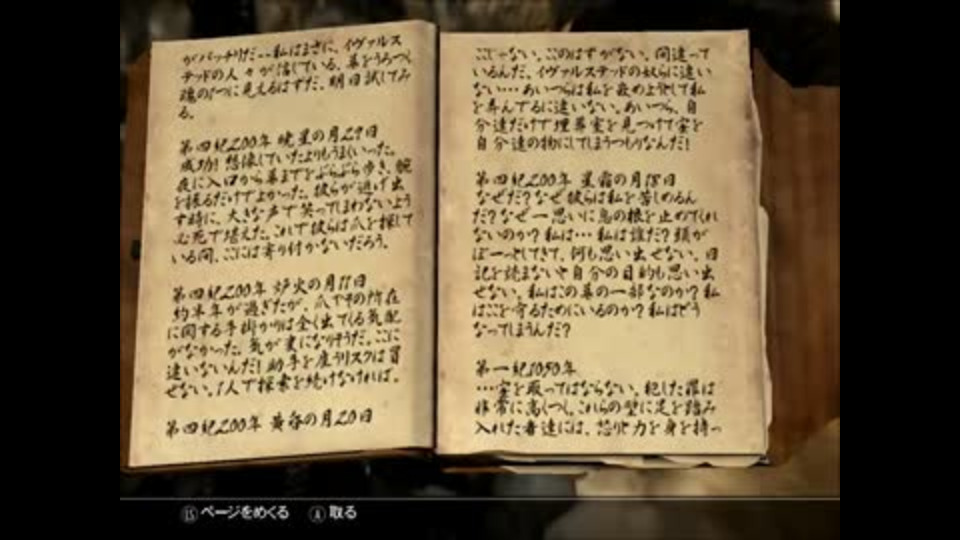 がバッチリだ--私はまさに、イヴァルス
テッドの人々が信じている、墓をうろつく
魂の1つに見えるはずだ。明日試してみ
る。
第四紀200年 暁星の月29日
成功! 想像していたよりもうまくいった。
夜に入口から墓までをぶらぶら歩き、腕
を振るだけでよかった。彼らが逃げ出
す時に、大きな声で笑ってしまわないよう
必死で堪えた。これで彼らは爪を探して
いる間、ここには寄り付かないだろう。
第四紀200年 炉火の月11日
約半年が過ぎたが、爪やその所在
に関する手掛かりは全く出てくる気配
がなかった。気が変になりそうだ。ここに
違いないんだ! 助手を雇うリスクは冒
せない。1人で探索を続けなければ。
第四紀200年 黄昏の月20日
こじゃない。このはずがない。間違って
いるんだ。イヴァルステッドの奴らに違い
ない…あいつらは私を嵌めようとして私
を弄んでるに違いない。あいつら、自
分達だけで埋葬室を見つけて宝を
自分達の物にしてしまうつもりなんだ!
第四紀200年 星霜の月18日
なぜだ? なぜ彼らは私を苦しめるん
だ? なぜ一思いに息の根を止めてくれ
ないのか? 私は… 私は誰だ? 頭が
ぼーっとしてきて、何も思い出せない。日
記を読まないと自分の目的も思い出
せない。私はこの墓の一部なのか? 私
はここを守るためにいるのか? 私はどう
なってしまうんだ?
第一紀1050年
…宝を取ってはならない。犯した罪は
非常に高くつく。これらの壁に足を踏み
入れた者達には、怒りと力を身を持っ
LS ページをめくる A 取る